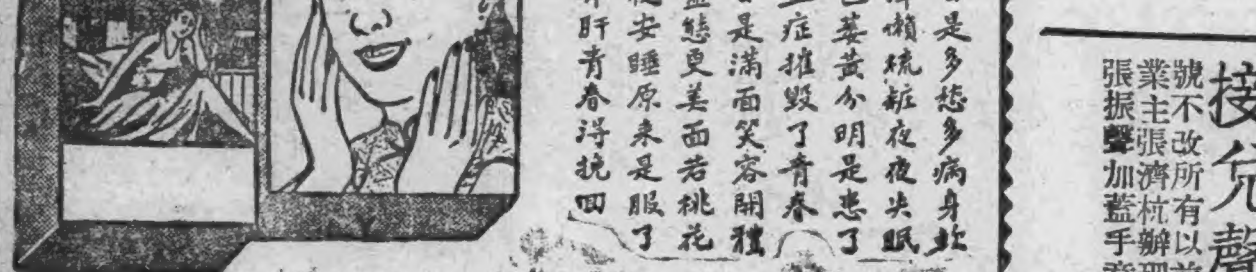 是多愁多病身軟
懶梳粧夜夜失眠
萎黃分明是患了
症摧毀了青春
是滿面笑容開襟
態更美面若桃花
安睡原来是服了
肝青春得挽回
接兌聲
號不改所有以
業主張濟杭辦理
張振聲加藍手